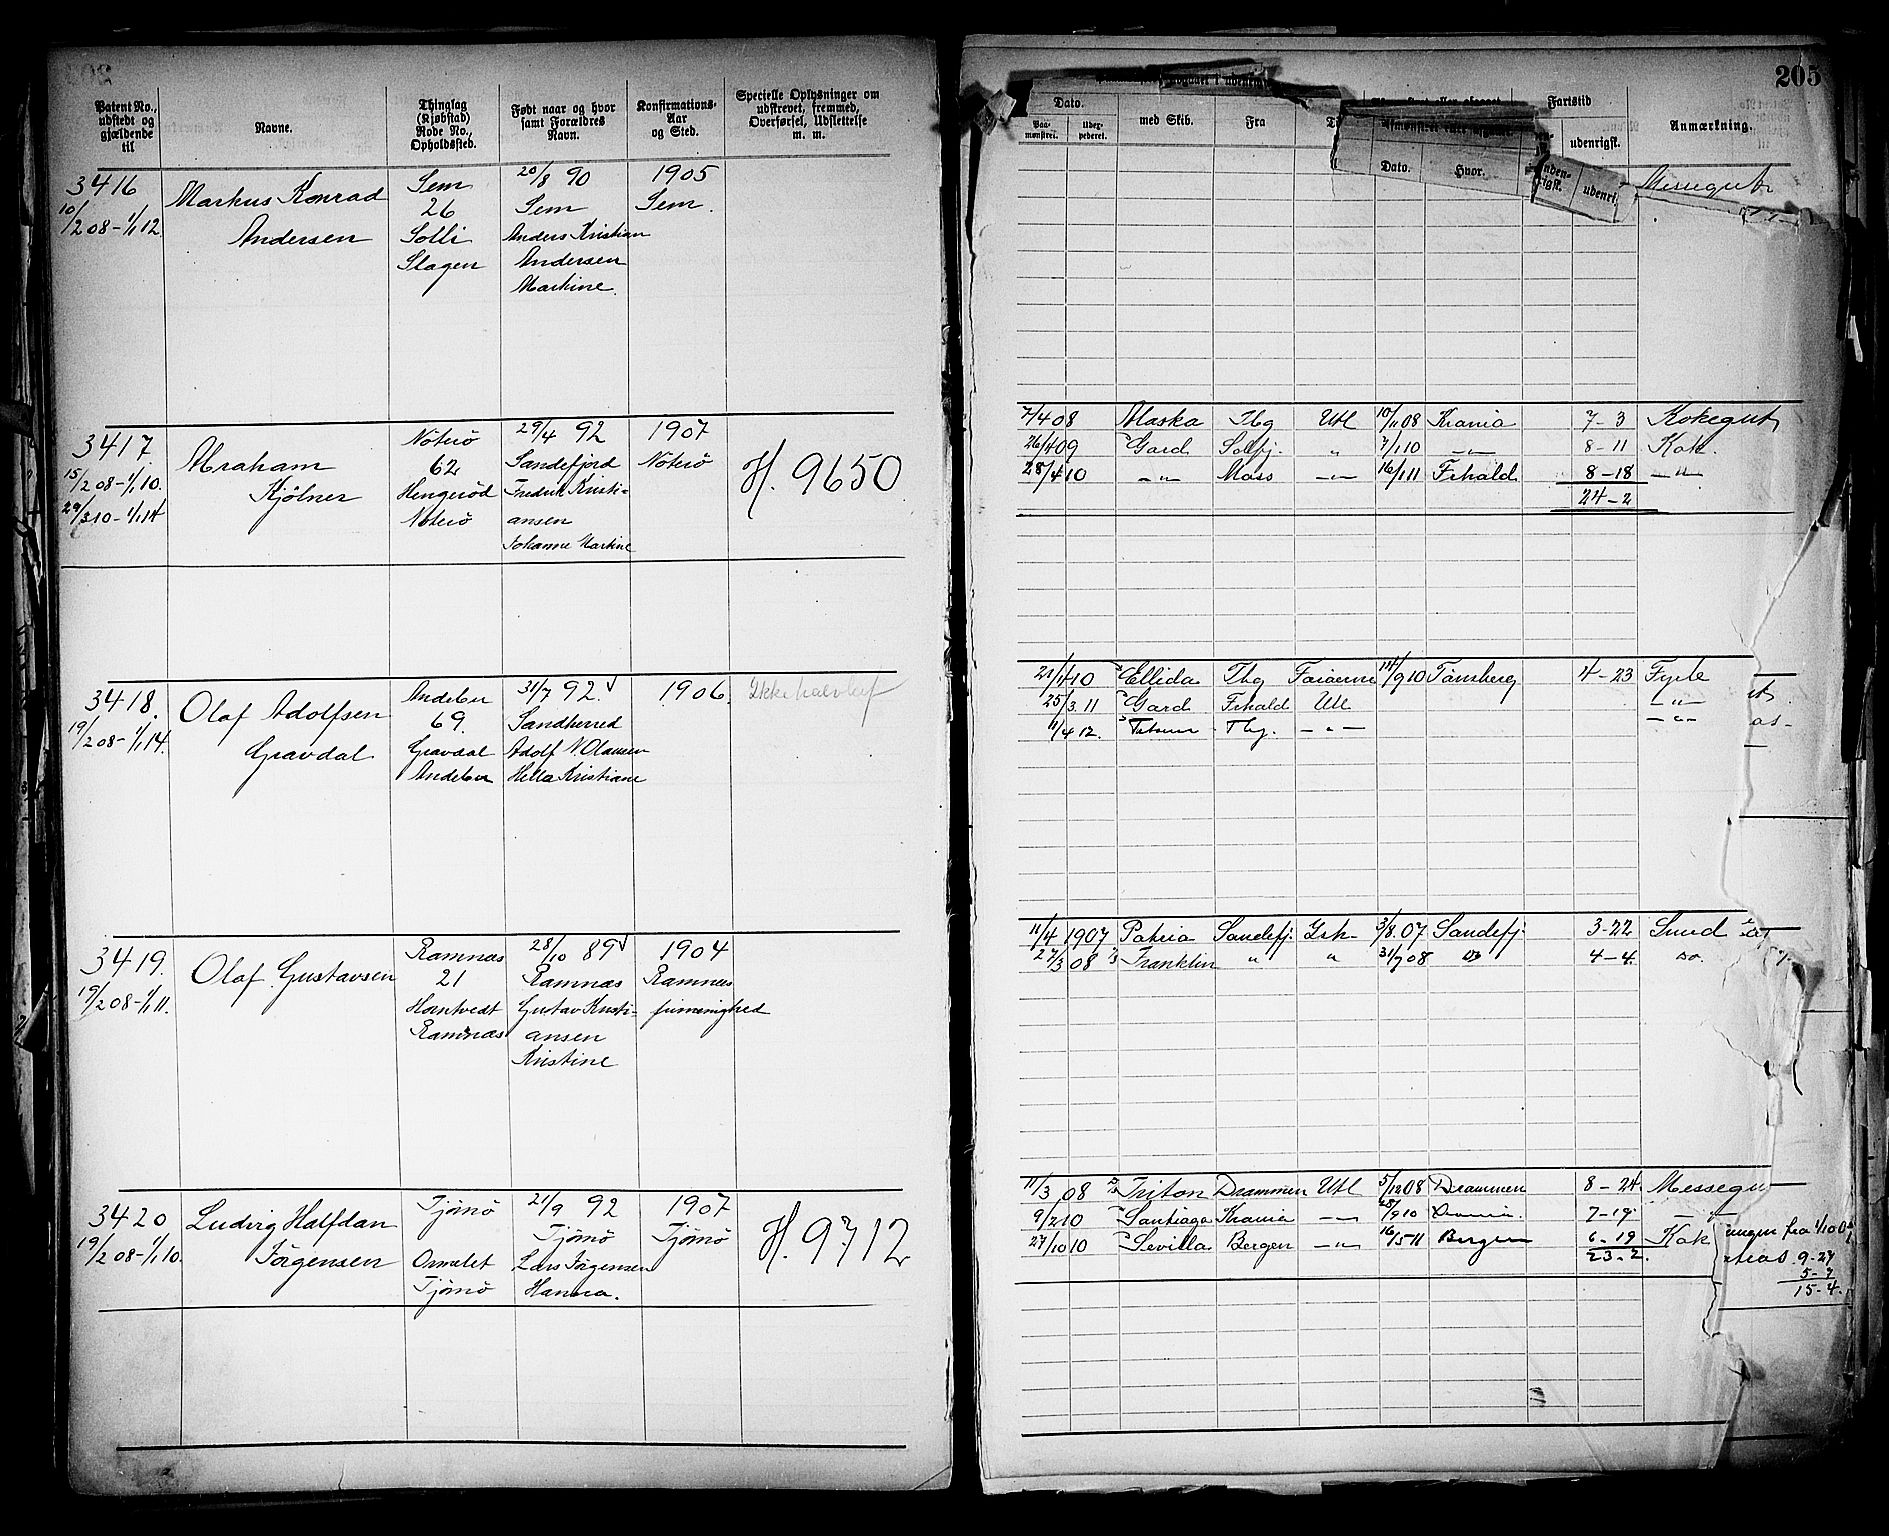 Patent No., udstedt og gjældende til
Navne.
Thinglag (Kjøbstad) Rode No., Opholdssted.
Født naar og hvor samt Forældres Navn.
Konfirmations-Aar og Sted.
Specielle Oplysninger om udskrevet, fremmed, Overførsel, Udslettelse m. m.
3416
10/2 08 - 1/1 12
Markus Konrad
Andersen
Sem
26
Solli
Slagen
20/8 90
Sem
Anders Kristian
Andersen
Martine.
1905
Sem.
3417.
15/2 08 - 1/1 10.
29/3 10 - 1/1 14
Abraham
Kjölner
Nöterö
62
Hengeröd
Nöterö
29/4 92
Sandefjord
Fredrik Kristi-
ansen
Johanne Martine
1907
Nöterö
H. 9650
3418.
19/2 08 - 1/1 14.
Olaf Adolfsen
Gravdal
Andebu
69.
Gravdal
Andebu
31/7 92
Sandherred
Adolf N Olaussen
Hella Kristiane
1906.
3419.
19/2 08 - 1/1 11.
Olaf Gustavsen
Ramnæs
21
Hantvedt
Ramnæs
28/10 89
Ramnæs
Gustav Kristi-
ansen
Kristine
1904
Ramnæs
frimenighed
3420
19/2 08 - 1/1 10.
Ludvig Halfdan
Jörgensen
Tjömö
Ormelet
Tjömö
21/9 92
Tjömö
Lars Jörgensen
Hanna.
1907
Tjömö
H. 9712
205
Dato.
Paa-mønstret.
Udex-pederet.
med Skib.
Fra
Dato.
Hvor.
Fartstid
Inden-rigst.
udenrigst.
Anmærkning.
Messegut
7/4 08 Alaska Tbg Utl 10/11 08 Krania 7 - 3 Kokegut
26/4 09 Gard Solfj. " 7/1 10 -"- 8 - 11 Kok.
28/4 10 -"- Moss -"- 16/1 11 Frhald 8 - 18 -"-
24 - 2
21/1 10 Ellida Tbg Færöerne 14/9 10 Tönsberg 4 - 23 Fyrb
25/3 11 Gard Frhald Utl -"-
11/4 12. Tbg. -"- -"-
11/4 1907 Patria Sandefj. Ish. 3/8. 07 Sandefj. 3-22 Smed
27/3 08 Franklin " " 31/7 08 Do 4 - 4. Do.
11/3 08 Triton Drammen Utl 5/12 08 Drammen 8 - 24 Messegut
9/2 10 Santiago Krania -"- 25/9 10 Krania. 7-19. -"-
27/10 10 Sevilla Bergen -"- 16/5 11 Bergen 6 - 19 Kok
23 - 2.
9-27
5-7
15-4.